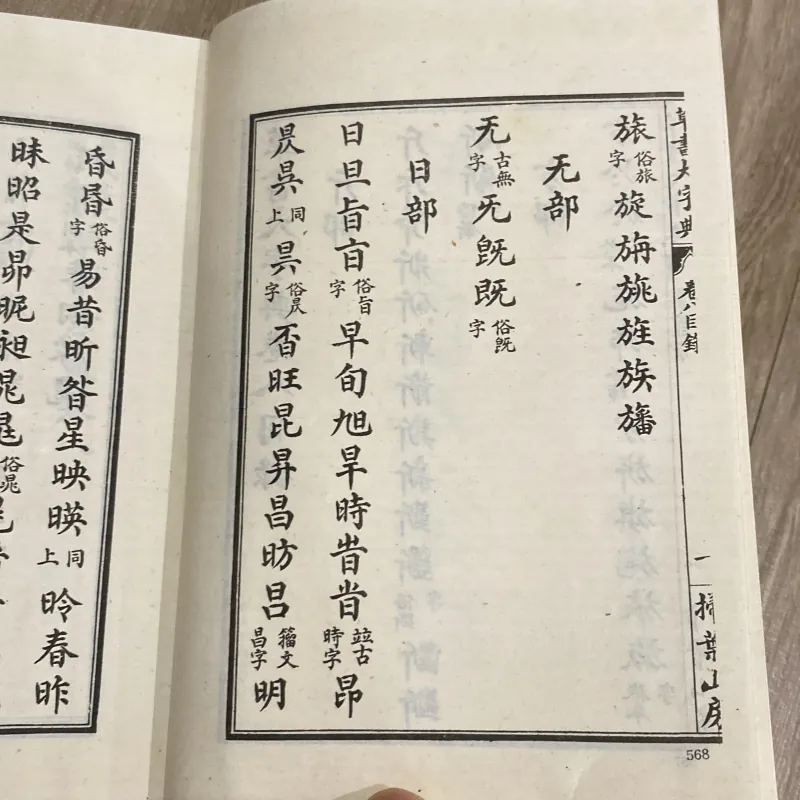 草書大字典 卷八目錄 一 掃葉山房
旅俗旅字旋旃旐旌族旛
无部
无古無字旡旣既俗旣字
日部
日旦旨㫖俗旨字早旬旭旱時旹旹竝古時字昂
昃昊同上昗俗昃字否旺昆昇昌昉昌籀文昌字明
昏昬俗昏字易昔昕昝星映暎同上昤春昨
昧昭是昴昵昶晁俗晁
568